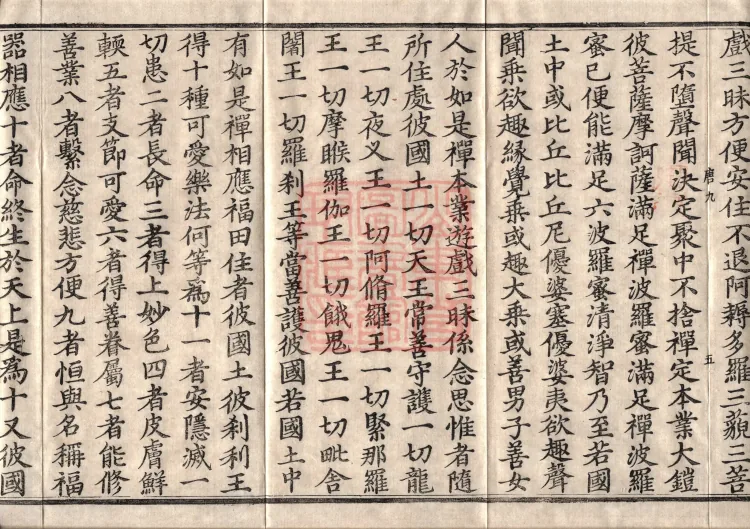 戲三昧方便安住不退阿耨多羅三藐三菩
唐九
五
提不墮聲聞決定聚中不捨禪定本業大鎧
彼菩薩摩訶薩滿足禪波羅蜜滿足禪波羅
蜜已便能滿足六波羅蜜清淨智乃至若國
土中或比丘比丘尼優婆塞優婆夷欲趣聲
聞乘欲趣緣覺乘或趣大乘或善男子善女
人於如是禪本業遊戲三昧係念思惟者隨
所住處彼國土一切天王常善守護一切龍
王一切夜叉王一切阿脩羅王一切緊那羅
王一切摩睺羅伽王一切餓鬼王一切毗舍
闍王一切羅剎王等當善護彼國若國土中
有如是禪相應福田住者彼國土彼剎利王
得十種可愛樂法何等為十一者安隱滅一
切患二者長命三者得上妙色四者皮膚鮮
輭五者支節可愛六者得善眷屬七者能修
善業八者繫念慈悲方便九者恒與名稱福
器相應十者命終生於天上是為十又彼國